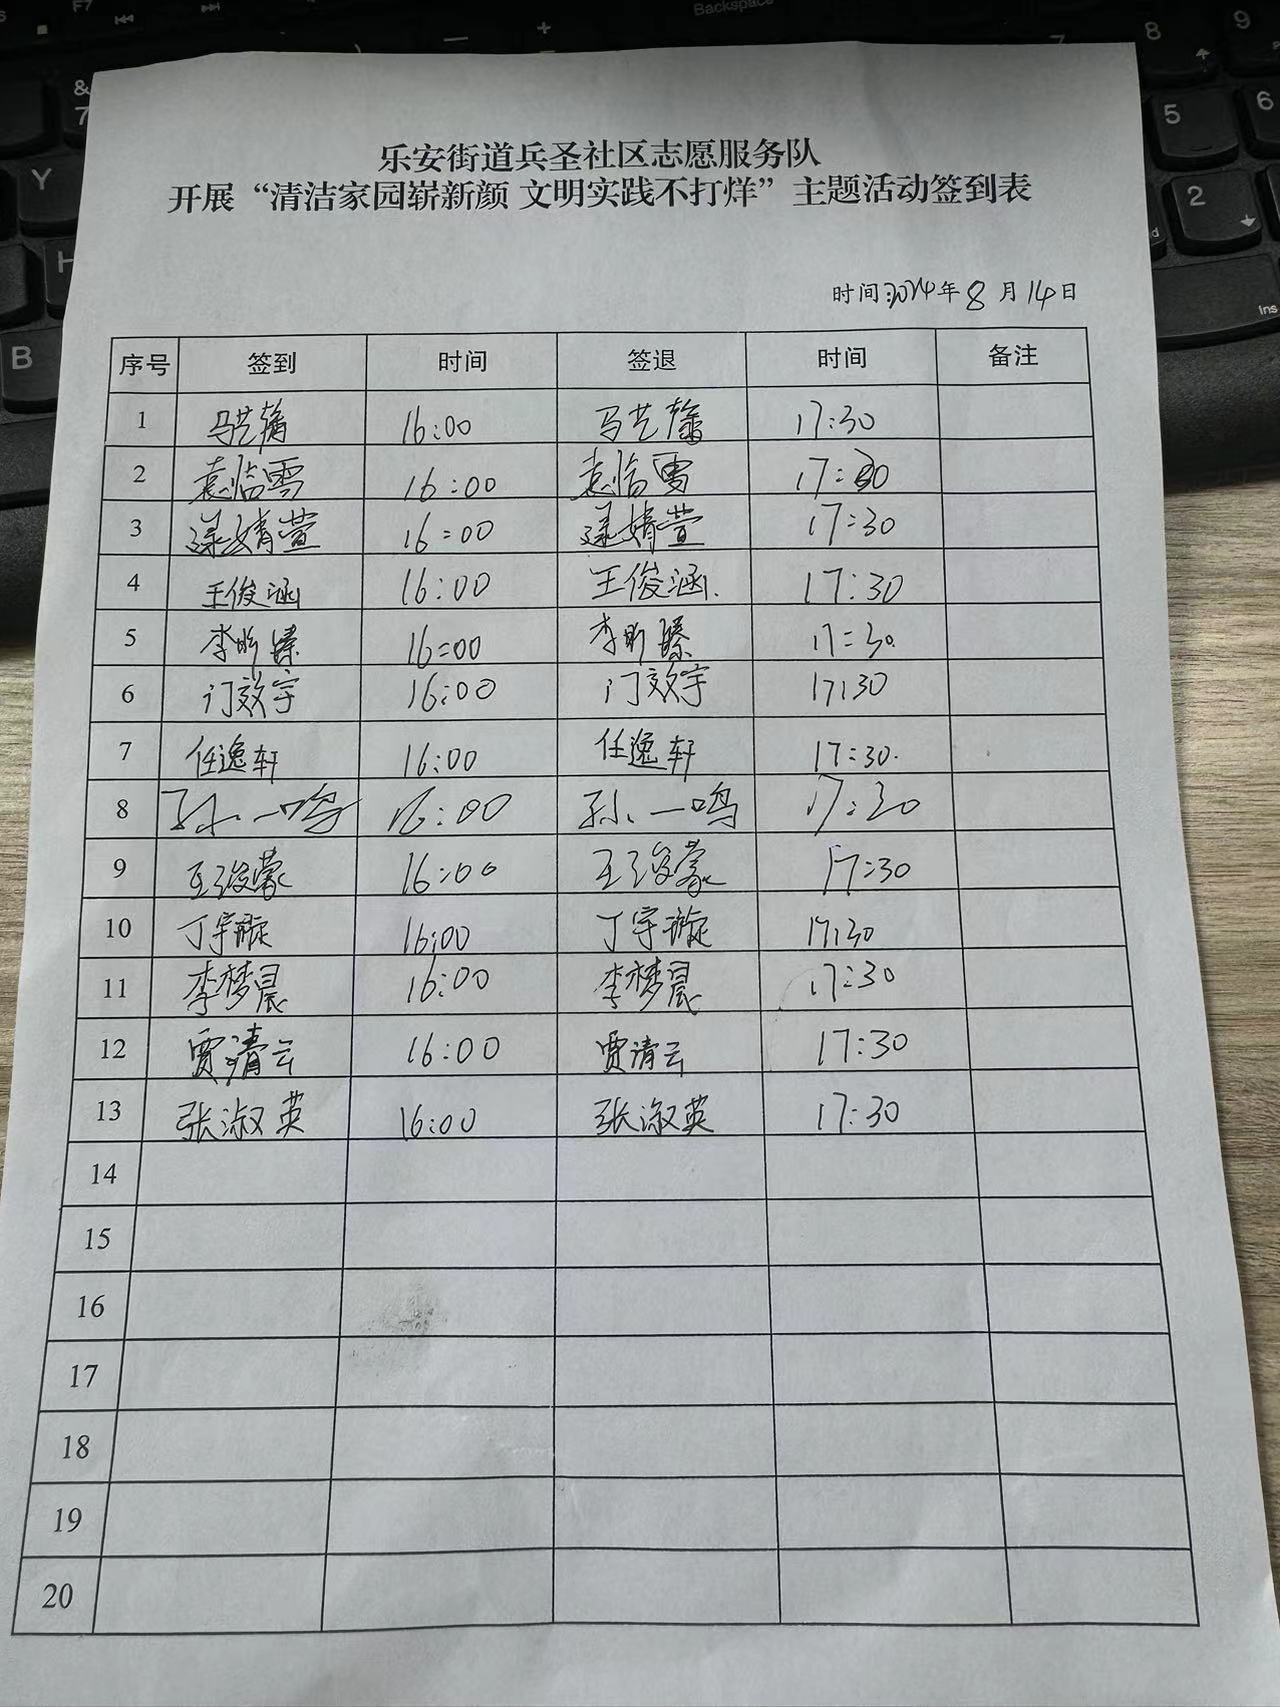 乐安街道兵圣社区志愿服务队
开展“清洁家园崭新颜 文明实践不打烊”主题活动签到表
时间:2024年8月14日
序号 签到 时间 签退 时间 备注
1 马艺 16:00 马艺 17:30
2 袁临雪 16:00 袁临雪 17:30
3 婧萱 16:00 婧萱 17:30
4 王俊涵 16:00 王俊涵 17:30
5 李昕臻 16:00 李昕臻 17:30
6 门效宇 16:00 门效宇 17:30
7 任逸轩 16:00 任逸轩 17:30
8 孙一鸣 16:00 孙一鸣 17:30
9 王浚豪 16:00 王浚豪 17:30
10 丁宇璇 16:00 丁宇璇 17:30
11 李梦晨 16:00 李梦晨 17:30
12 贾清云 16:00 贾清云 17:30
13 张淑英 16:00 张淑英 17:30
14
15
16
17
18
19
20
F7
Backspace
&
7
Y
H
B
8
9
5
6
2
Ins